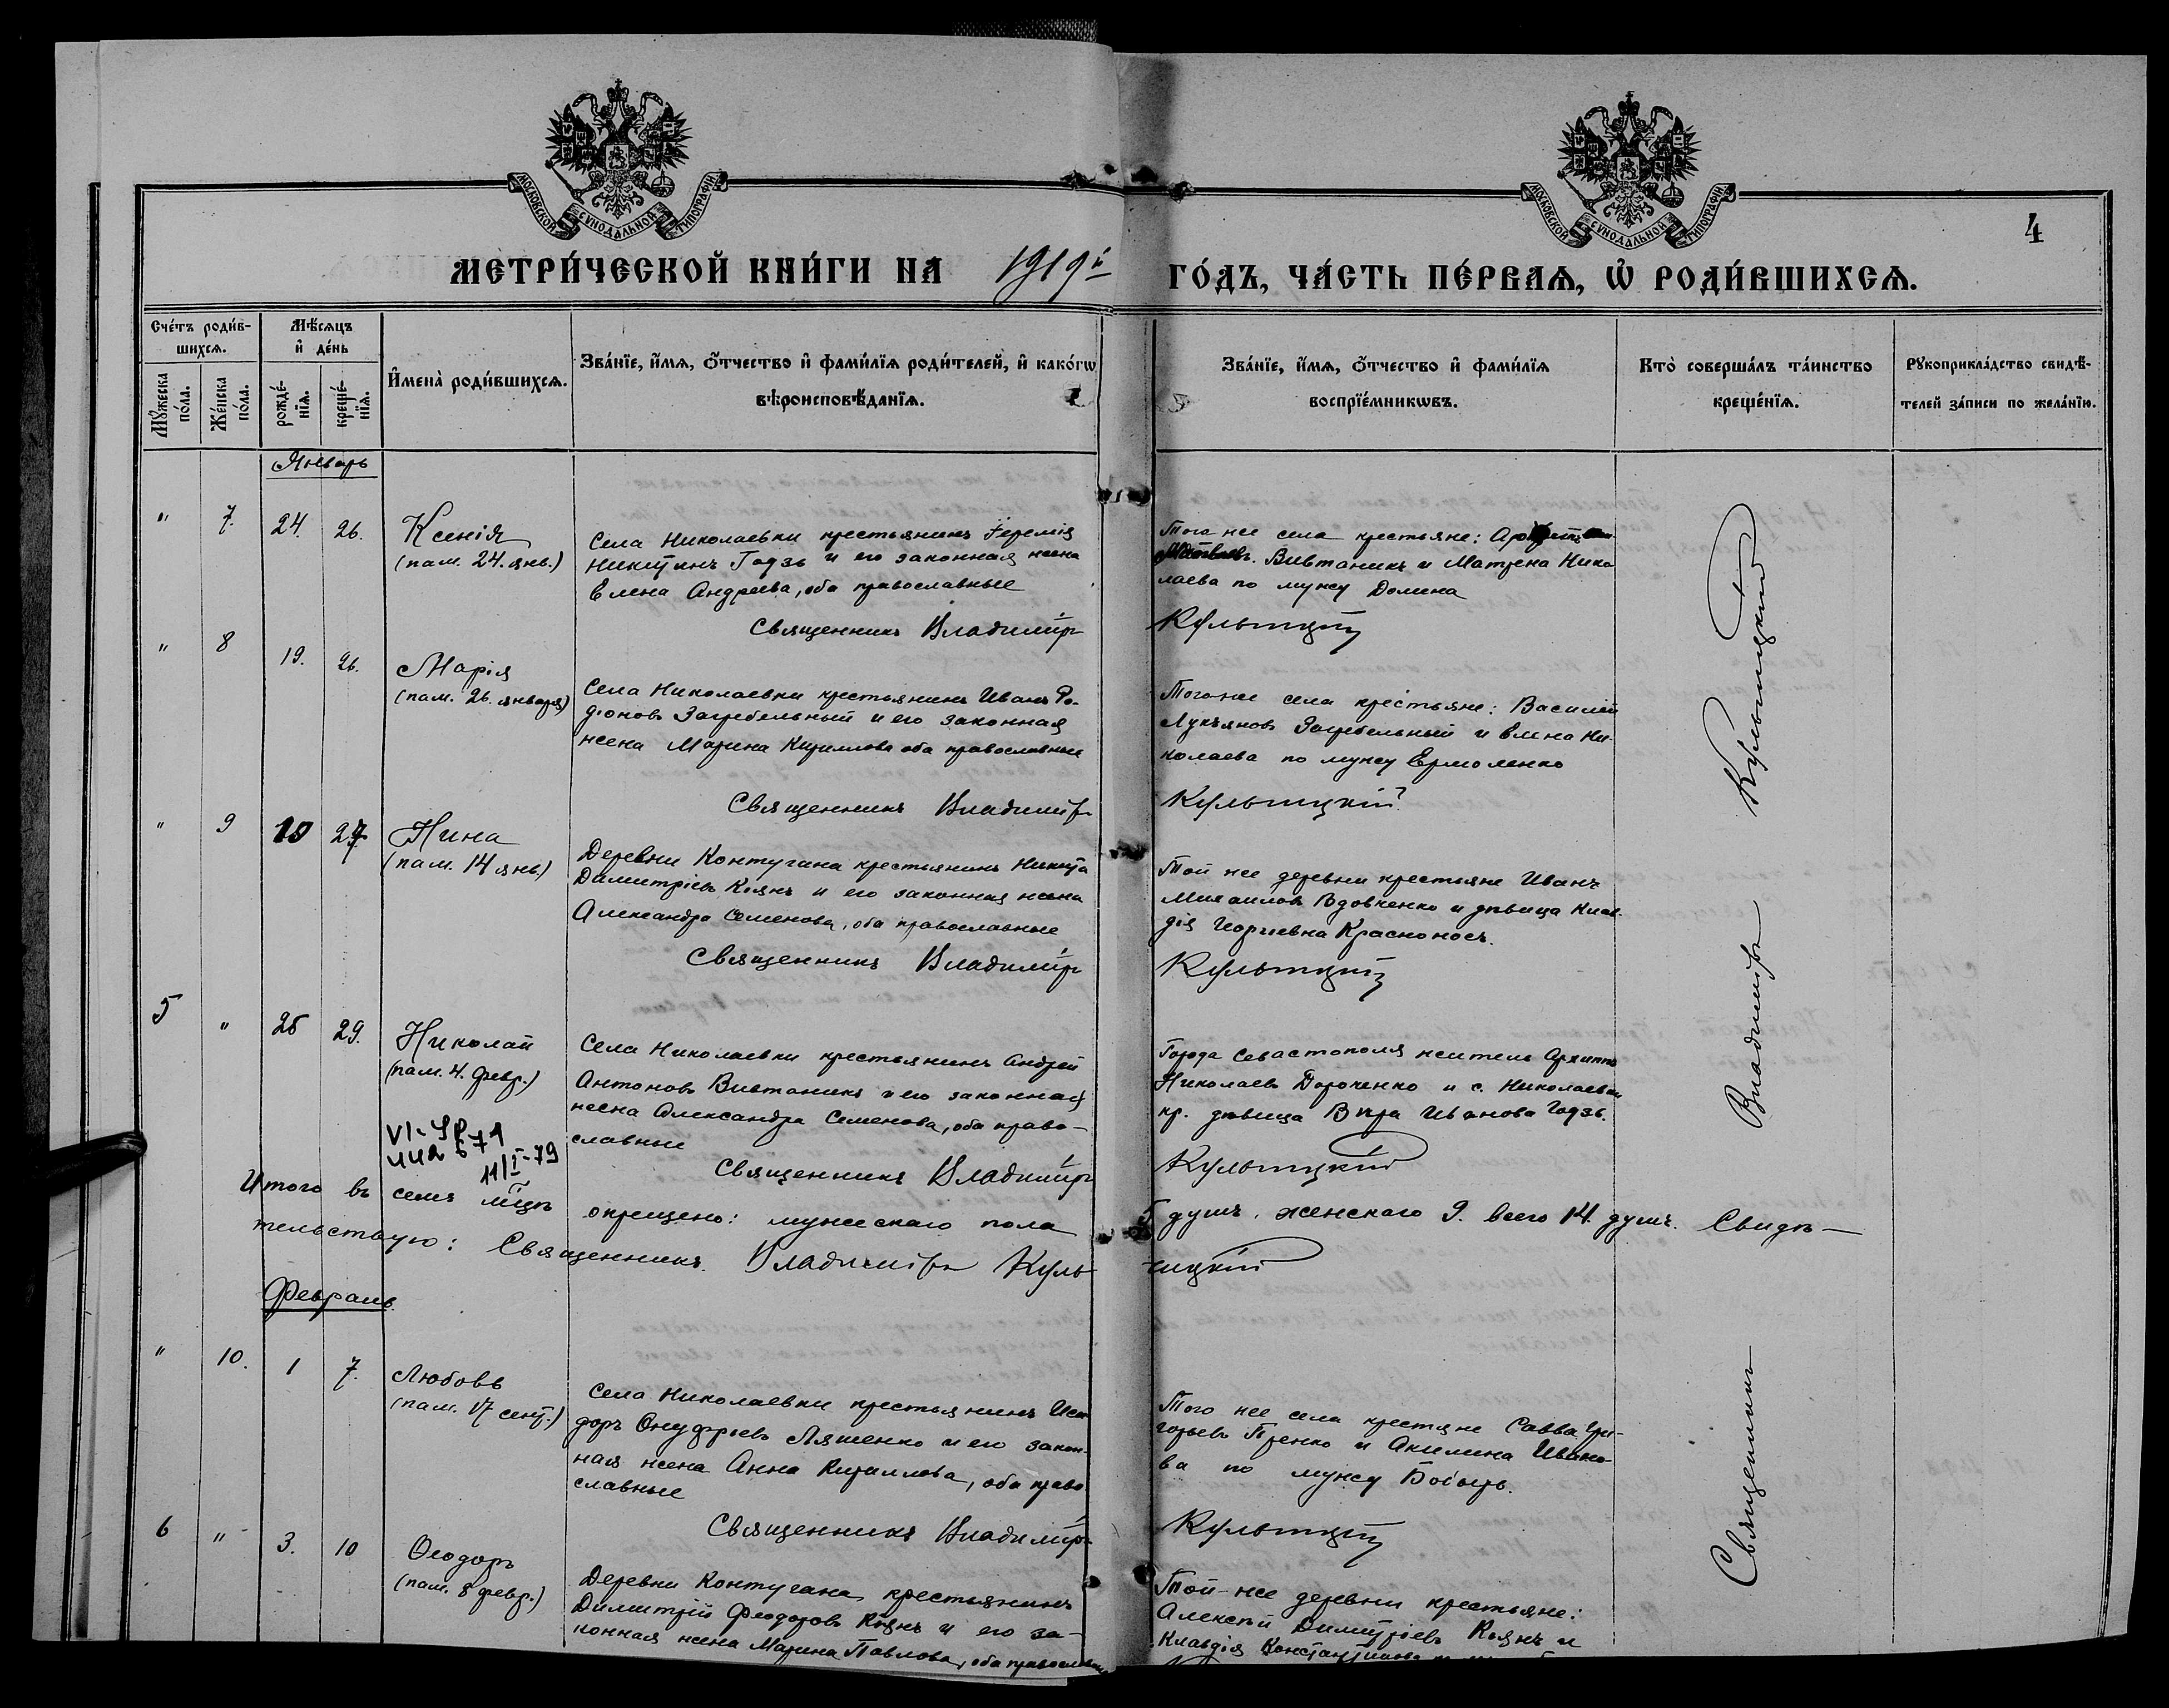 МОСКОВСКОЙ СѴНОДАЛЬНОЙ ТИПОГРАФІИ
МОСКОВСКОЙ СѴНОДАЛЬНОЙ ТИПОГРАФІИ
4
МЕТРИ́ЧЕСКОЙ КНИ́ГИ НА 1919й ГО́ДЪ, ЧА́СТЬ ПЕ́РВАѦ, Ѡ҆ РОДИ́ВШИХСѦ.
Сче́тъ роди́в-
шихсѧ.
Мꙋ́жеска
по́ла.
Же́нска
по́ла.
Мѣ́сѧцъ
и҆ де́нь
рожде́-
нїѧ.
креще́-
нїѧ.
И҆мена̀ роди́вшихсѧ.
Зва́нїе, и҆́мѧ, ѻ҆́тчество и҆ фами́лїѧ роди́телей, и҆ како́гѡ
вѣроисповѣ́данїѧ.
Зва́нїе, и҆́мѧ, ѻ҆́тчество и҆ фами́лїѧ
воспрїе́мникѡвъ.
Кто̀ соверша́лъ та́инство
креще́нїѧ.
Рꙋкоприкла́дство свидѣ́-
телей за́писи по жела́нїю.
Январь
" 7. 24. 26. Ксенія
(пам. 24. янв.)
Села Николаевки крестьянинъ Іеремія
Никитинъ Годзь и его законная жена
Елена Андреева, оба православные
Священникъ Владиміръ
Того же села крестьяне:
Вивтаникъ и Матрена Нико
лаева по мужу Долина
Кульчицкій
" 8 19. 26. Марія
(пам. 26. января)
Села Николаевки крестьянинъ Иванъ Ро-
діоновъ Загребельный и его законная
жена Марина Кириллова оба православные
Священникъ Владиміръ
Того же села крестьяне: Василій
Лукъяновъ Загребельный и Елена Ни-
колаева по мужу Ермоленко
Кульчицкій
" 9 10 27 Нина
(пам. 14 янв.)
Деревни Контугана крестьянинъ Никита
Димитріевъ Коянъ и его законная жена
Александра Семенова, оба православные
Священникъ Владиміръ
Той же деревни крестьяне Иванъ
Михаиловъ Вдовченко и дѣвица Клав-
дія Георгиевна Красноносъ.
Кульчицкій
5 " 25 29. Николай
(пам. 4. февр.)
11/I-79
Села Николаевки крестьянинъ Андрей
Антоновъ Вивтаникъ и его законная
жена Александра Семенова, оба право-
славные
Священникъ Владиміръ
Города Севастополя житель Архиппъ
Николаевъ Дорошенко и с. Николаевки
кр. дѣвица Вѣра Иванова Годзь.
Кульчицкій
Итого въ семъ мѣцѣ окрещено: мужескаго пола 5 душъ, женскаго 9. всего 14. душъ. Свидѣ-
тельствую: Священникъ Владиміръ Кульчицкій
Февраль
" 10. 1 7. Любовь
(пам. 17 сент.)
Села Николаевки крестьянинъ Иси
доръ Онуфріевъ Ляшенко и его закон-
ная жена Анна Кириллова, оба право
славные
Священникъ Владиміръ
Того же села крестяне Савва Гри-
горьевъ и Акилина Ивано-
ва по мужу
Кульчицкій
6 " 3. 10 Ѳеодоръ
(пам. 8 февр.)
Деревни Контугана крестьянинъ
Димитрій Феодоровъ Коянъ и его за-
конная жена Марина Павлова, оба православные
Той же деревни крестьяне:
Алексѣй Димитріевъ Коянъ и
Клавдія Константинова
Священникъ Владиміръ Кульчицкій